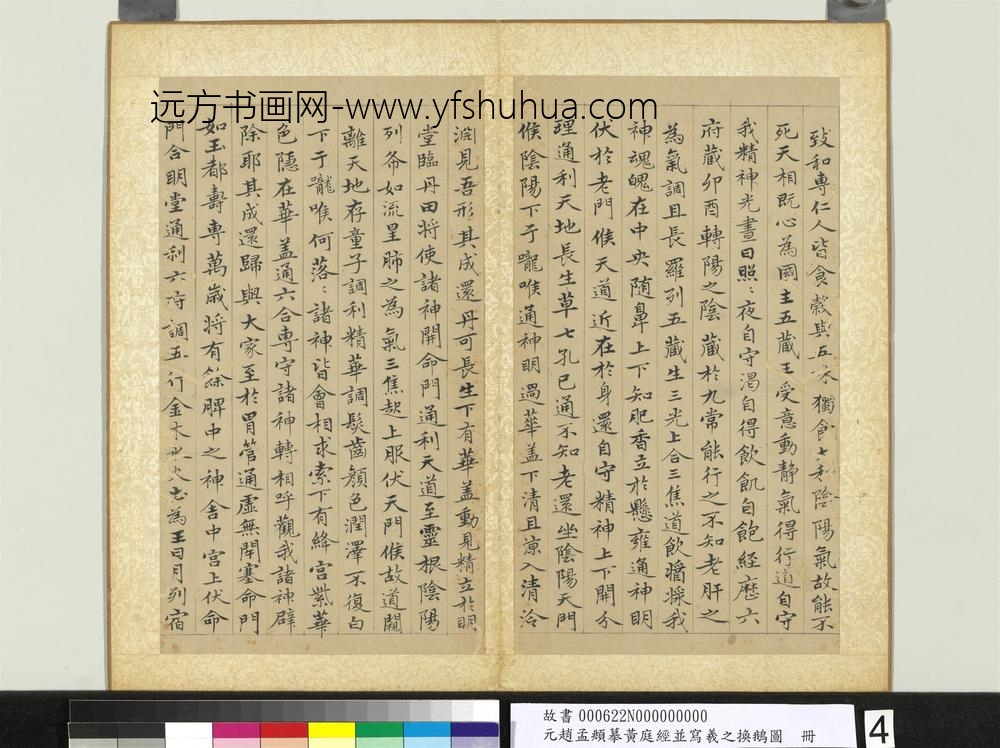 远方书画网-www.yfshuhua.com
致和專仁人皆食穀與五味獨食太和陰陽氣故能不
死天相既心為國主五藏王受意動靜氣得行道自守
我精神光晝日照〻夜自守渴自得飲飢自飽経歷六
府藏卯酉轉陽之陰藏於九常能行之不知老肝之
為氣調且長羅列五藏生三光上合三焦道飲醬漿我
神魂魄在中央随鼻上下知肥香立於懸雍通神明
伏於老門候天道近在於身還自守精神上下開分
理通利天地長生草七孔已通不知老還坐陰陽天門
候陰陽下于嚨喉通神明過華盖下清且涼入清泠
淵見吾形其成還丹可長生下有華盖動見精立於明
堂臨丹田将使諸神開命門通利天道至靈根陰陽
列布如流星肺之為氣三焦起上服伏天門候故道闚
離天地存童子調利精華調髮齒顏色潤澤不復白
下于嚨喉何落〻諸神皆會相求索下有絳宫紫華
色隱在華盖通六合専守諸神轉相呼觀我諸神辟
除耶其成還歸與大家至於胃管通虚無閉塞命門
如玉都壽専萬歲将有餘脾中之神舍中宫上伏命
門合明堂通利六府調五行金木水火土為王日月列宿
故書 000622N000000000
元趙孟頫摹黃庭經並寫羲之換鵝圖 冊
4